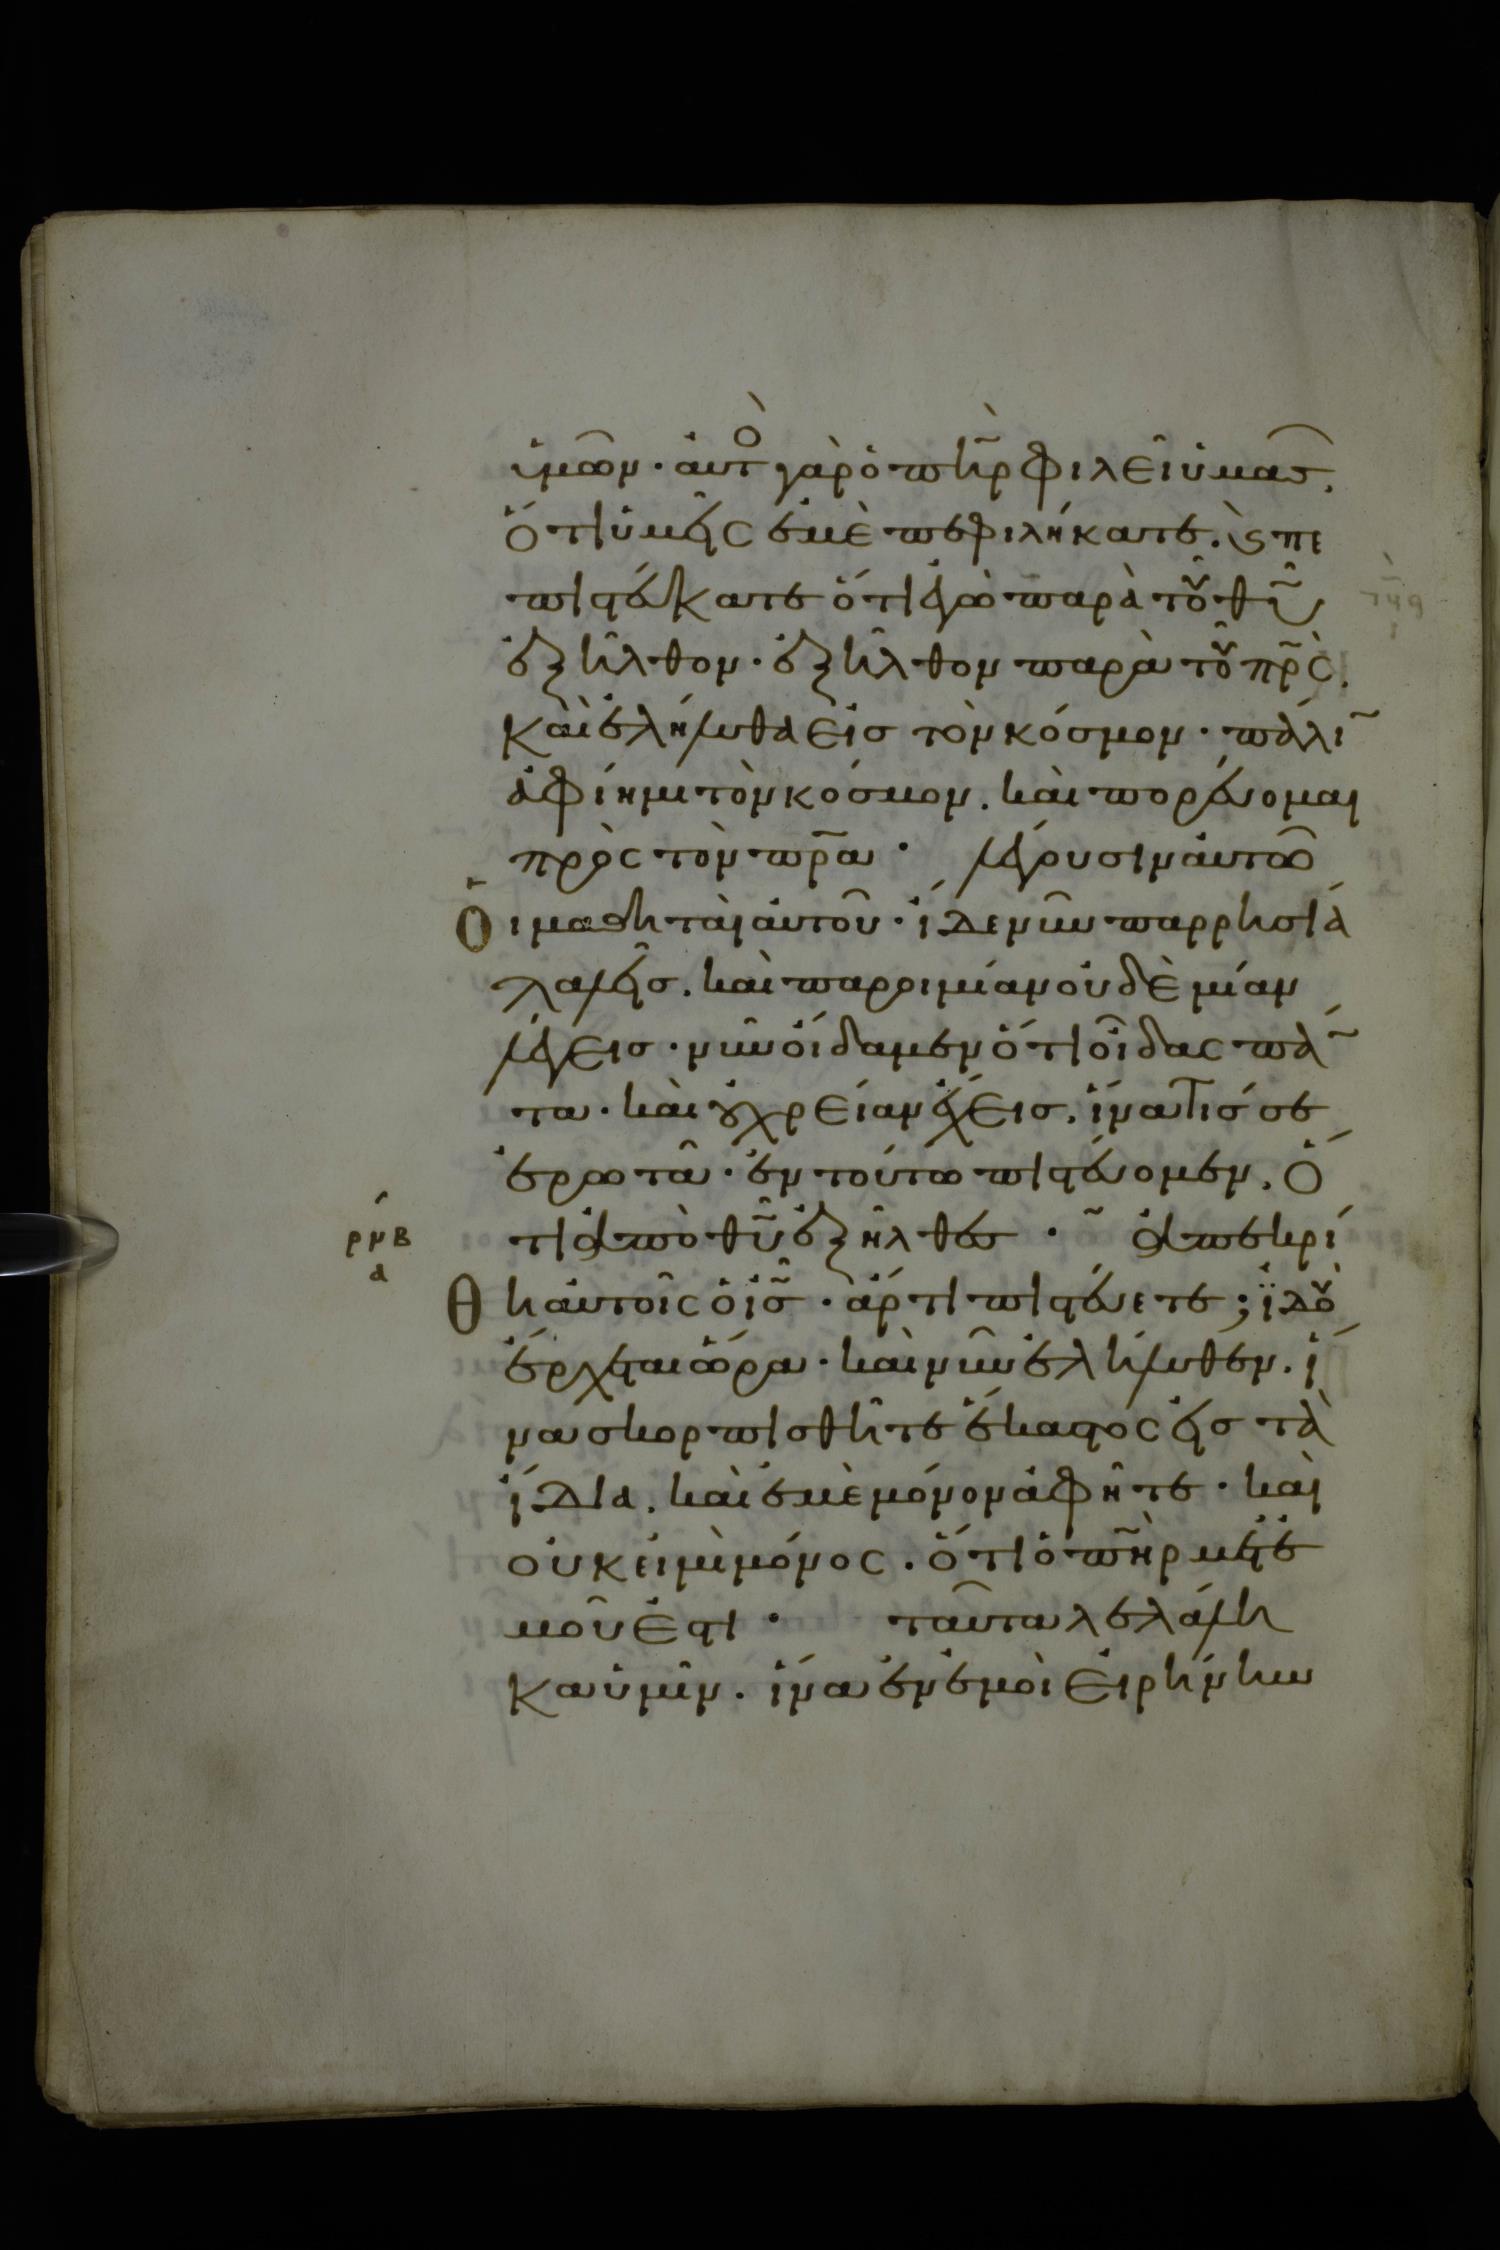 ὑμῶν· αὐτὸ γὰρ ὁ πῆ̅ρ φιλεῖ ὑμᾶσ.
ὅτι ὑμεῖς ἐμὲ πεφιλήκατε. ϗ πε
πιστεύκατε ὅτι ἐγὼ παρὰ τοῦ θ̅υ̅
ἐξῆλθον· ἐξῆλθον παρὰ τοῦ π̅ρ̅ς.
καὶ ἐλήλυθα εἰσ τὸν κόσμον· πάλι̅
ἀφίημι τὸν κόσμον. καὶ πορεύομαι
πρὸς τὸν π̅ρ̅α· λέγουσιν αὐτῶ
Οἱ μαθηταὶ αὐτοῦ· ἴδε νῦν παρρησία
λαλεῖσ. καὶ παροιμίαν οὐδὲ μίαν
λέγεισ· νῦν οἴδαμεν ὅτι οἶδας πά̅
τα· καὶ οὐ χρείαν ἔχεισ. ἵνα τίσ σε
ἐρωτᾶ· ἐν τούτω πιστεύομεν. ὅ
τι ἀπὸ θ̅υ̅ ἐξῆλθεσ· ἀπεκρί
ρμβ
α
Θη αὐτοῖς ὁ ι̅σ̅· ἄρτι πιστεύετε; ϊδοὺ
ἔρχεται ὥρα· καὶ νῦν ἐλήλυθεν. ἵ
να σκορπισθῆτε ἕκαστος εἰσ τὰ
ἴδια. καὶ ἐμὲ μόνον ἀφῆτε· καὶ
οὐκ εἰμὶ μόνος. ὅτι ὁ π̅η̅ρ μετ ἐ
μοῦ ἐστι· ταῦτα λελάλη
κα ὑμῖν. ἵνα ἐν ἐμοὶ εἰρήνην